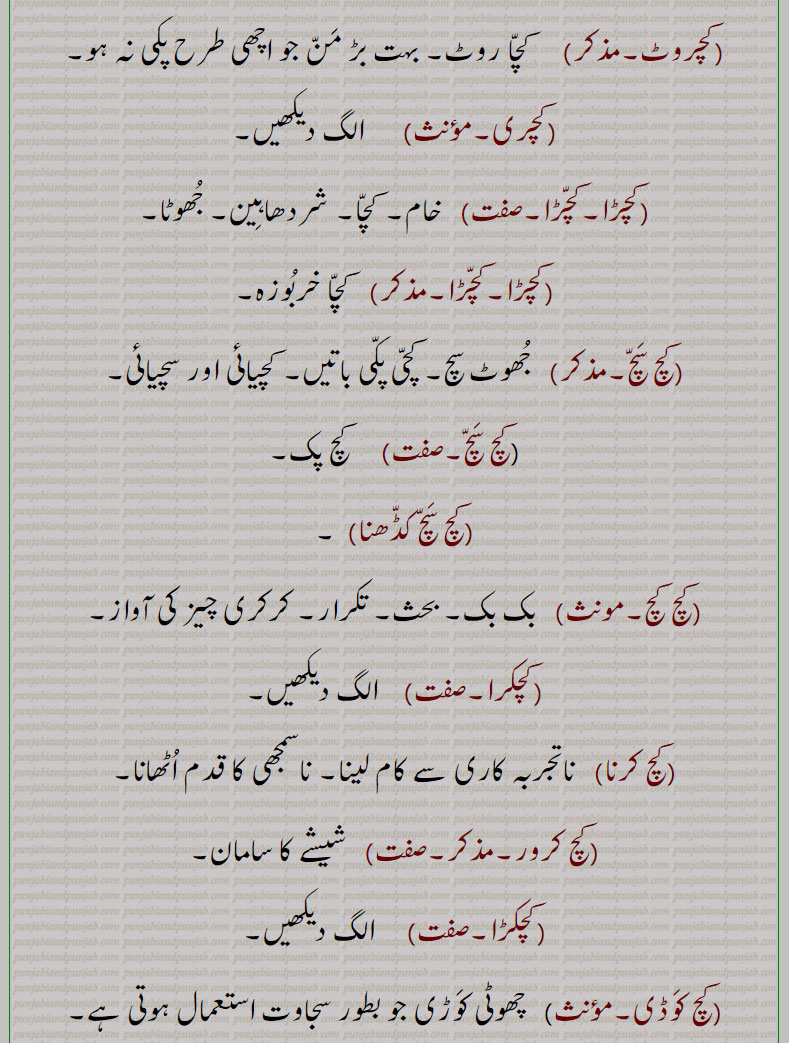 (کچروٹ۔مذکر) کچّا روٹ۔ بہت بڑ مَنّ جو اچھی طرح پکی نہ ہو۔
(کچری۔مؤنث) الگ دیکھیں۔
(کچڑا۔کچّڑا۔صفت) خام۔ کچّا۔ شردھاہِین۔ جُھوٹا۔
(کچڑا۔کچّڑا۔مذکر) کچّا خربُوزہ۔
(کچ سَچّ۔مذکر) جُھوٹ سچ۔ کچّی پکّی باتیں۔ کچیائی اور سچیائی۔
(کچ سَچّ۔صفت) کچ پک۔
(کچ سَچّ کڈّھنا) ۔
(کچ کچ۔مونث) بک بک۔ بحث۔ تکرار۔ کرکری چیز کی آواز۔
(کچکرا۔صفت) الگ دیکھیں۔
(کچ کرنا) ناتجربہ کاری سے کام لینا۔ ناسمجھی کا قدم اُٹھانا۔
(کچ کرور۔مذکر۔صفت) شیشے کا سامان۔
(کچکڑا۔صفت) الگ دیکھیں۔
(کچ کَوڈی۔مؤنث) چھوٹی کَوڑی جو بطور سجاوت استعمال ہوتی ہے۔